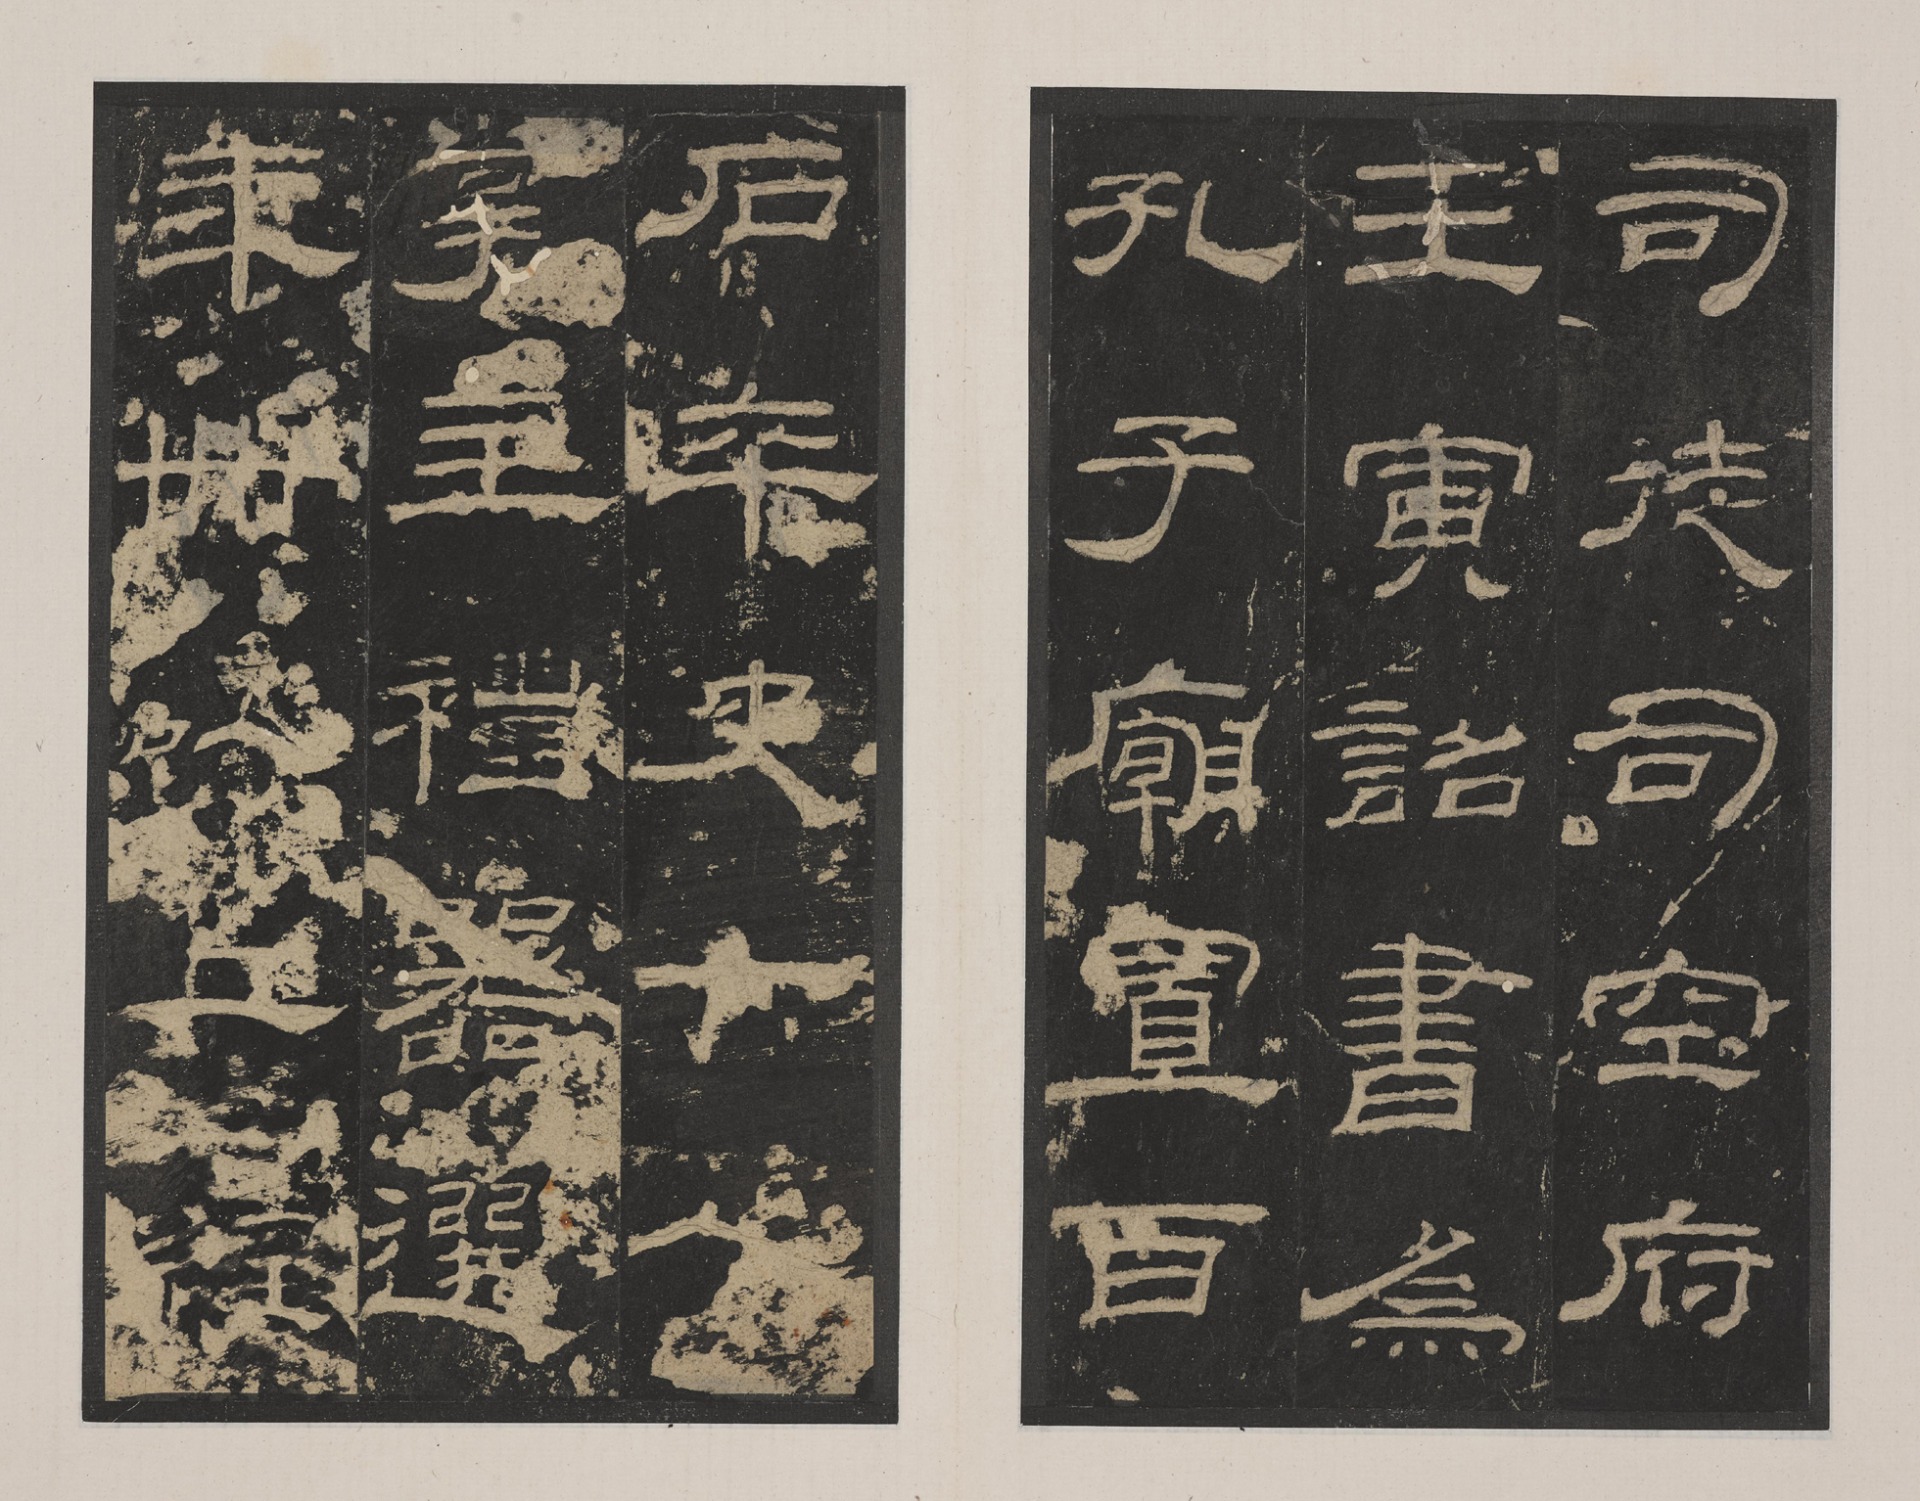 司徒司空府
壬寅詔書為
孔子廟置百
石卒史一人
掌主禮器選
年卌以上經